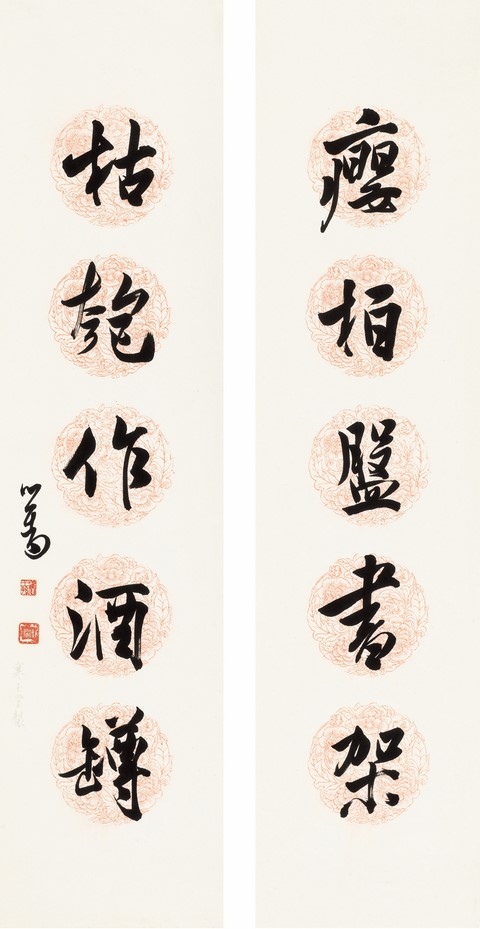 癭柏盤書架
枯匏作酒罇
心畬